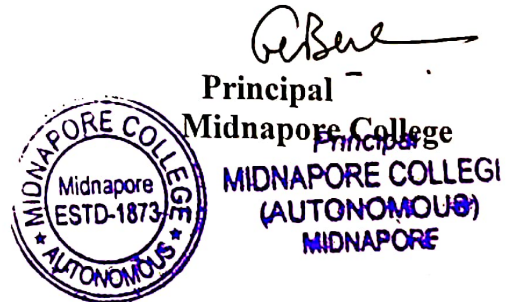 Principal
Midnapore College
Principal
MIDNAPORE COLLEGE
(AUTONOMOUS)
MIDNAPORE
MIDNAPORE COLLEGE
Midnapore
ESTD-1873
★ AUTONOMOUS ★